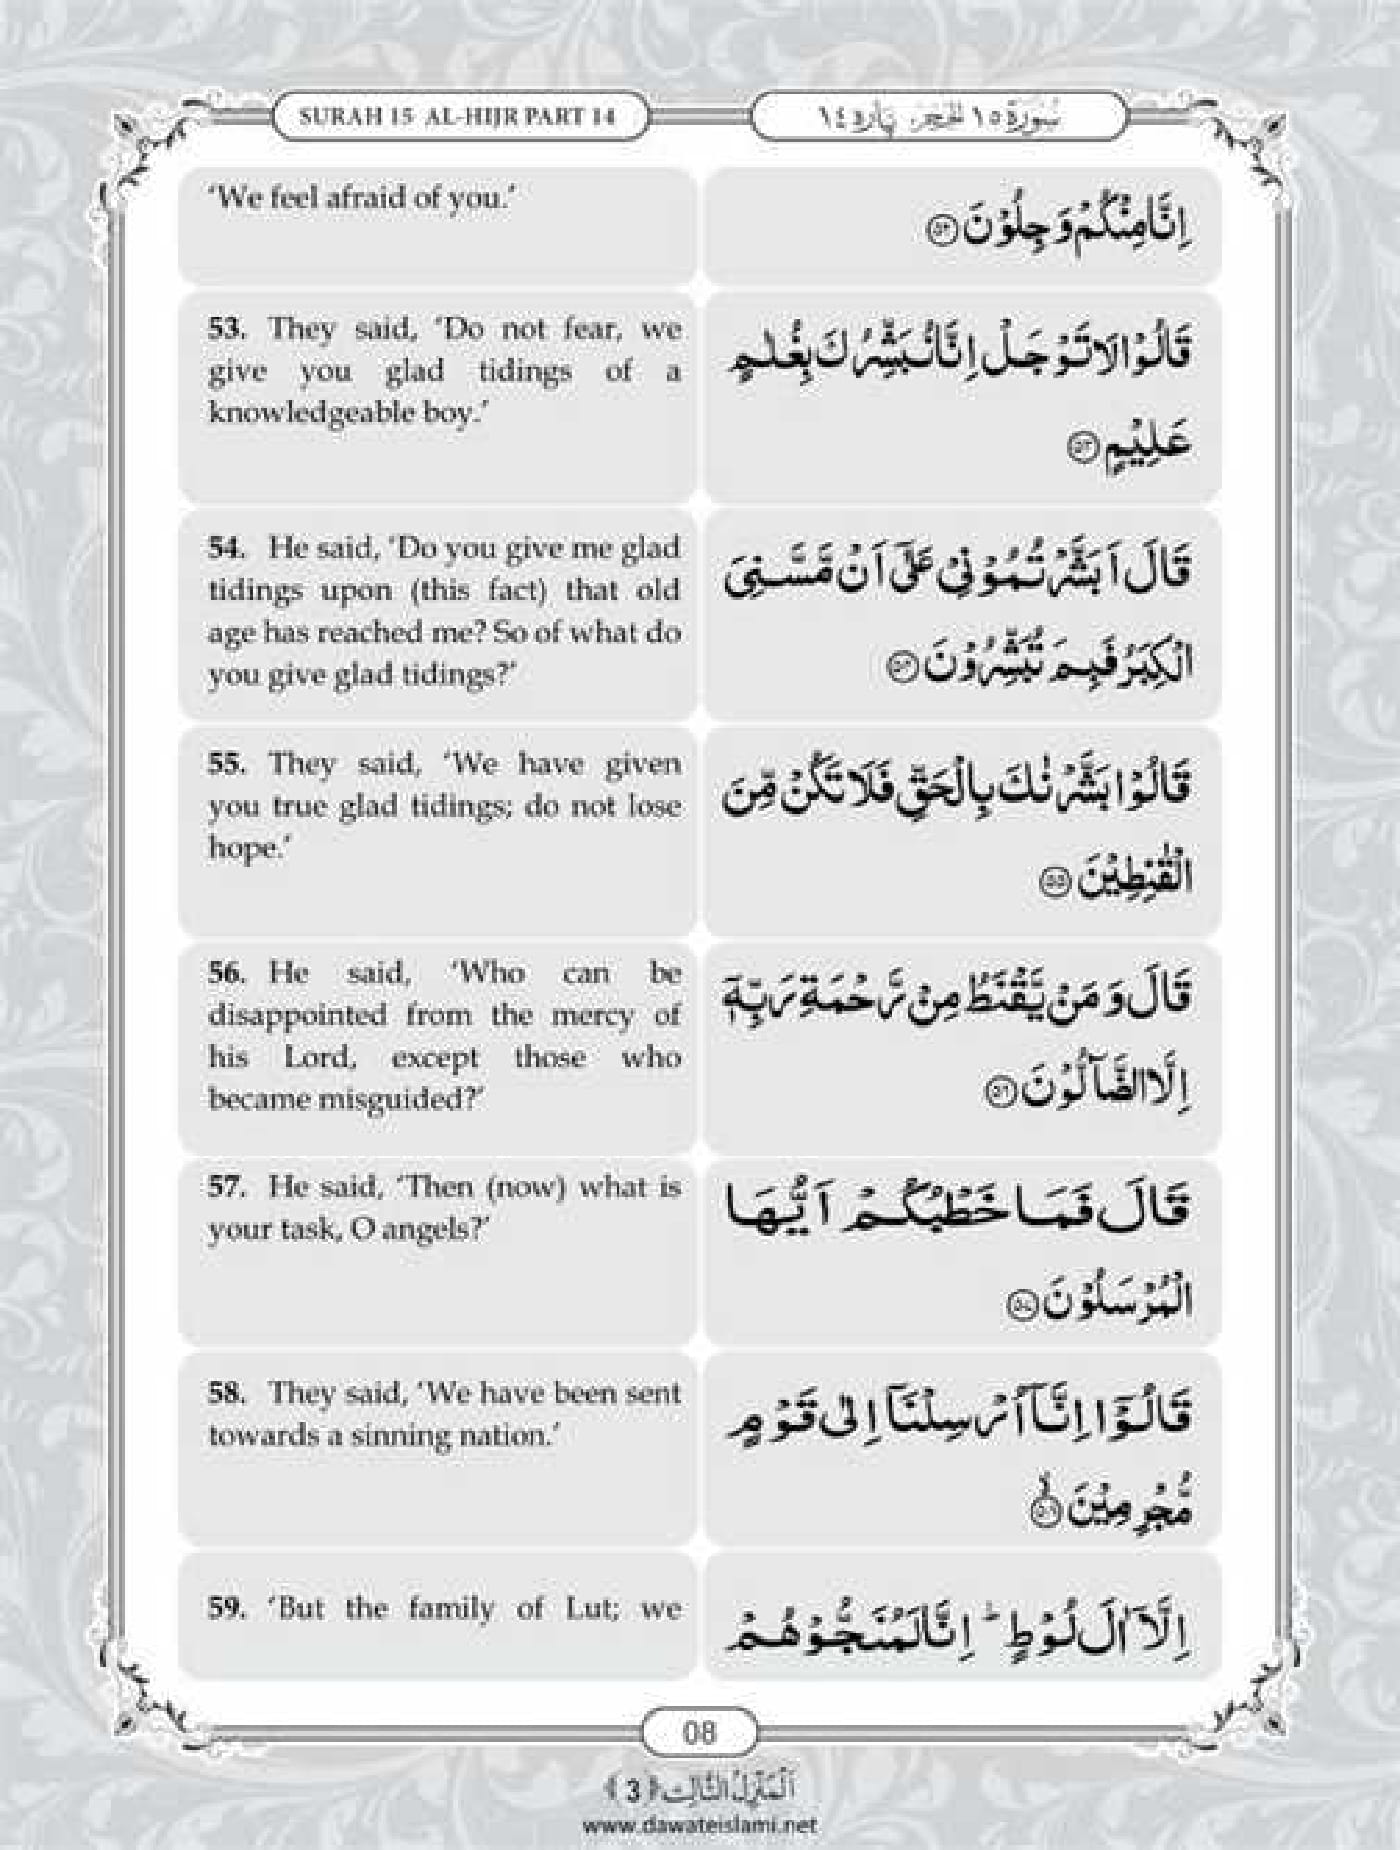 SURAH 15 AL-HIJR PART 14
سُوْرَةُ ١٥ الْحِجْر، پارہ ١٤
‘We feel afraid of you.’
اِنَّا مِنْكُمْ وَجِلُوْنَ ﴿۵۲﴾
53. They said, ‘Do not fear, we
give you glad tidings of a
knowledgeable boy.’
قَالُوْا لَا تَوْجَلْ اِنَّا نُبَشِّرُكَ بِغُلٰمٍ
عَلِيْمٍ ﴿۵۳﴾
54. He said, ‘Do you give me glad
tidings upon (this fact) that old
age has reached me? So of what do
you give glad tidings?’
قَالَ اَبَشَّرْتُمُوْنِيْ عَلٰۤى اَنْ مَّسَّنِيَ
الْكِبَرُ فَبِمَ تُبَشِّرُوْنَ ﴿۵۴﴾
55. They said, ‘We have given
you true glad tidings; do not lose
hope.’
قَالُوْا بَشَّرْنٰكَ بِالْحَقِّ فَلَا تَكُنْ مِّنَ
الْقٰنِطِيْنَ ﴿۵۵﴾
56. He said, ‘Who can be
disappointed from the mercy of
his Lord, except those who
became misguided?’
قَالَ وَ مَنْ يَّقْنَطُ مِنْ رَّحْمَةِ رَبِّهٖۤ
اِلَّا الضَّآلُّوْنَ ﴿۵۶﴾
57. He said, ‘Then (now) what is
your task, O angels?’
قَالَ فَمَا خَطْبُكُمْ اَيُّهَا
الْمُرْسَلُوْنَ ﴿۵۷﴾
58. They said, ‘We have been sent
towards a sinning nation.’
قَالُوْۤا اِنَّاۤ اُرْسِلْنَاۤ اِلٰى قَوْمٍ
مُّجْرِمِيْنَ ﴿۵۸﴾ۙ
59. ‘But the family of Lut; we
اِلَّاۤ اٰلَ لُوْطٍ ؕ اِنَّا لَمُنَجُّوْهُمْ
08
اَلْمَنْزِلُ الثَّالِث ﴿3﴾
www.dawateislami.net